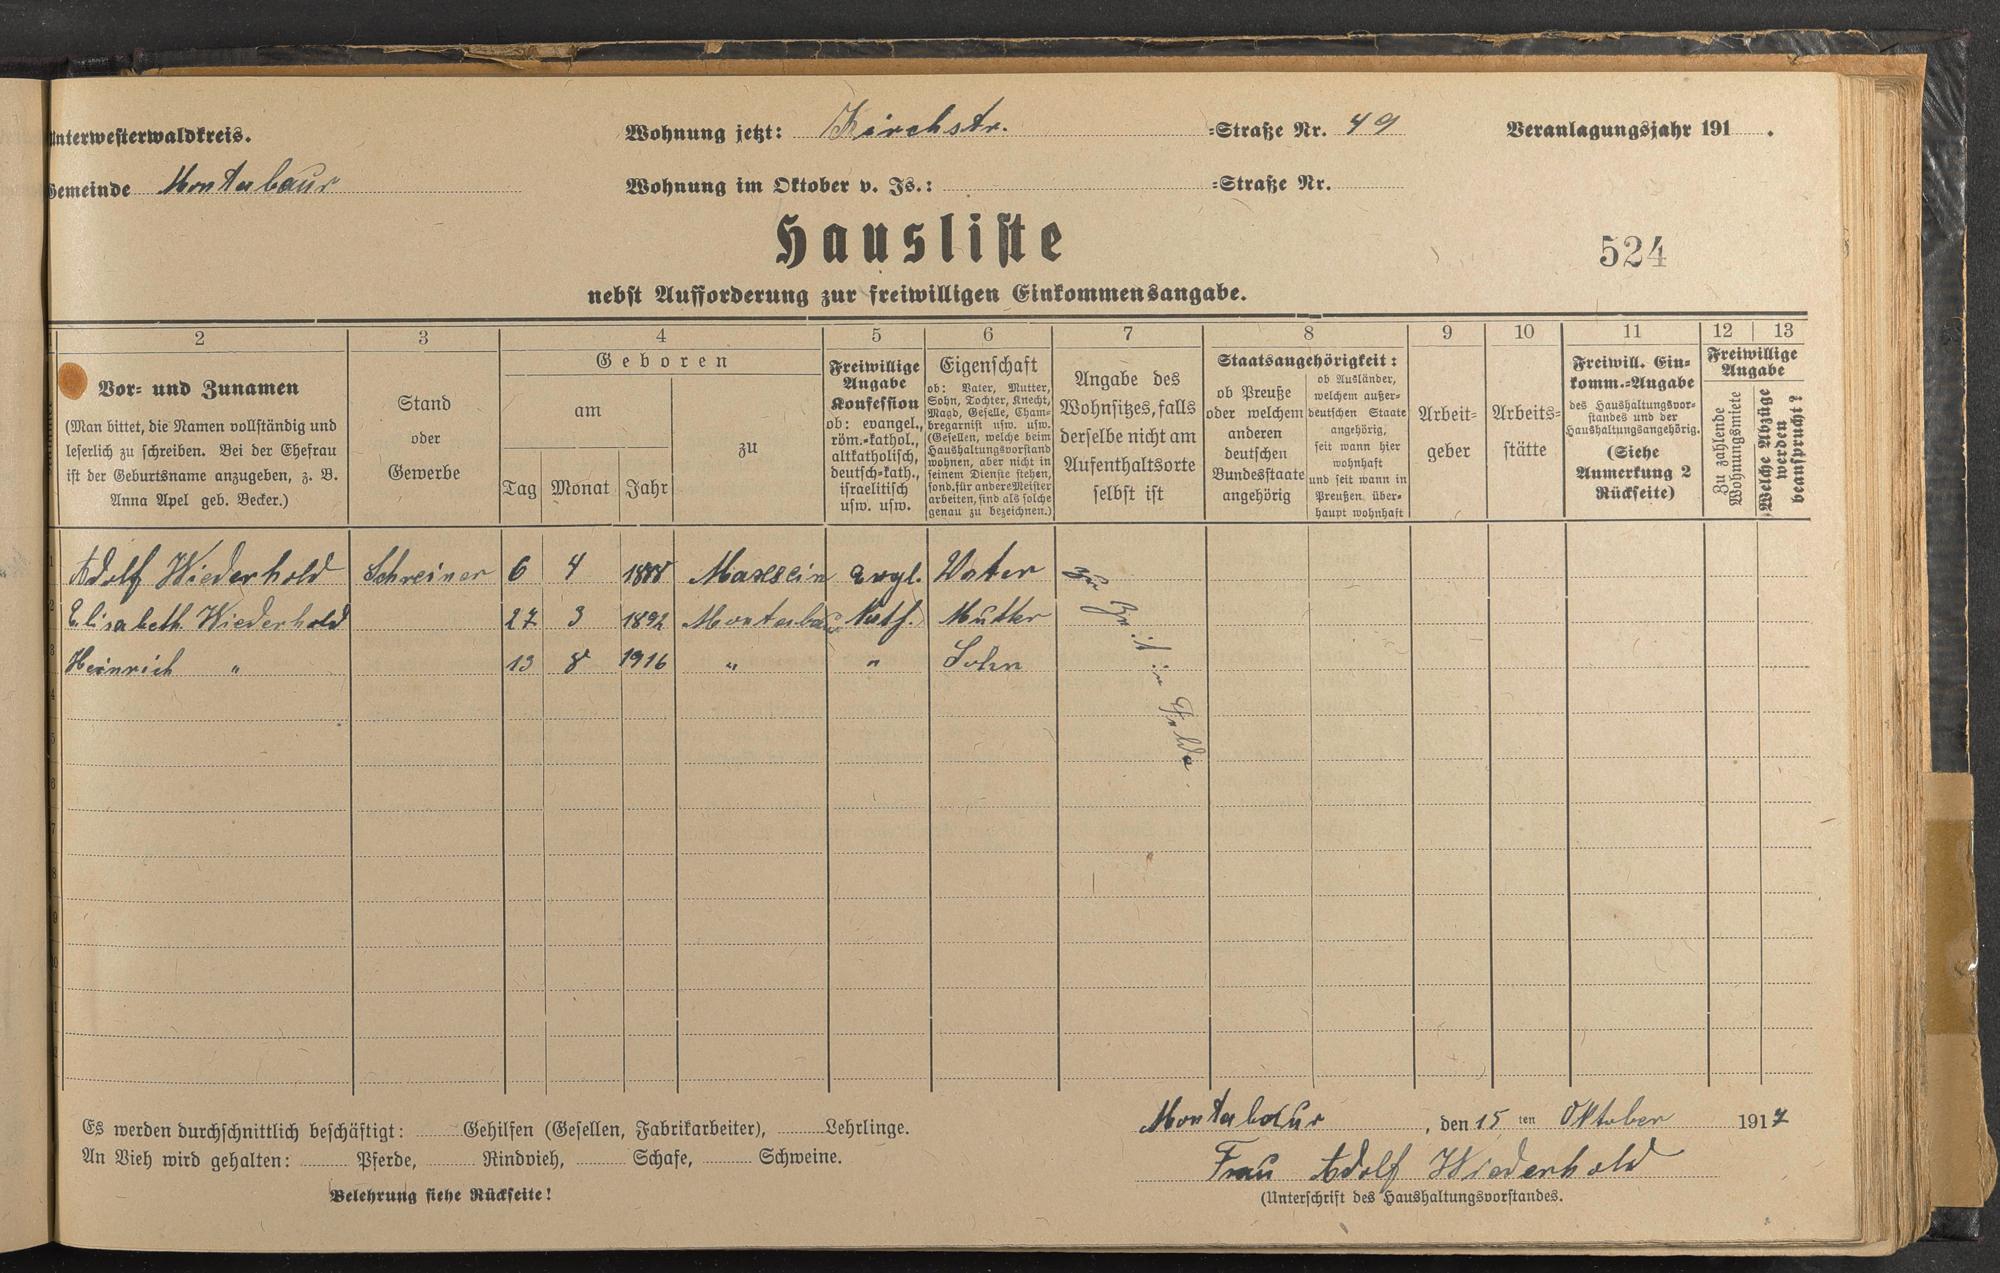 Unterwesterwaldkreis.
Wohnung jetzt: Kirchstr. -Straße Nr. 49
Veranlagungsjahr 191 .
Gemeinde Montabaur
Wohnung im Oktober v. Js.: -Straße Nr.
Hausliste
524
nebst Aufforderung zur freiwilligen Einkommensangabe.
2 3 4 5 6 7 8 9 10 11 12 13
Vor- und Zunamen
(Man bittet, die Namen vollständig und
leserlich zu schreiben. Bei der Ehefrau
ist der Geburtsname anzugeben, z. B.
Anna Apel geb. Becker.)
Stand
oder
Gewerbe
Geboren
am
Tag Monat Jahr
zu
Freiwillige
Angabe
Konfession
ob: evangel.,
röm.-kathol.,
altkatholisch,
deutsch-kath.,
israelitisch
usw. usw.
Eigenschaft
ob: Vater, Mutter,
Sohn, Tochter, Knecht,
Magd, Geselle, Cham-
bregarnist usw. usw.
(Gesellen, welche beim
Haushaltungsvorstand
wohnen, aber nicht in
seinem Dienste stehen,
sond. für andere Meister
arbeiten, sind als solche
genau zu bezeichnen.)
Angabe des
Wohnsitzes, falls
derselbe nicht am
Aufenthaltsorte
selbst ist
Staatsangehörigkeit:
ob Preuße
oder welchem
anderen
deutschen
Bundesstaate
angehörig
ob Ausländer,
welchem außer-
deutschen Staate
angehörig,
seit wann hier
wohnhaft
und seit wann in
Preußen über-
haupt wohnhaft
Arbeit-
geber
Arbeits-
stätte
Freiwill. Ein-
komm.-Angabe
des Haushaltungsvor-
standes und der
Haushaltungsangehörig.
(Siehe
Anmerkung 2
Rückseite)
Freiwillige
Angabe
Zu zahlende
Wohnungsmiete
Welche Abzüge
werden
beansprucht?
1 Adolf Wiederhold Schreiner 6 4 1888 Maxsein evgl. Vater
2 Elisabeth Wiederhold 27 3 1892 Montabaur Kath. Mutter
3 Heinrich " 13 8 1916 " " Sohn
zur Zeit im Felde
4
5
6
7
8
9
Es werden durchschnittlich beschäftigt: Gehilfen (Gesellen, Fabrikarbeiter), Lehrlinge.
An Vieh wird gehalten: Pferde, Rindvieh, Schafe, Schweine.
Belehrung siehe Rückseite!
Montabaur, den 15 ten Oktober 1917
Frau Adolf Wiederhold
(Unterschrift des Haushaltungsvorstandes.